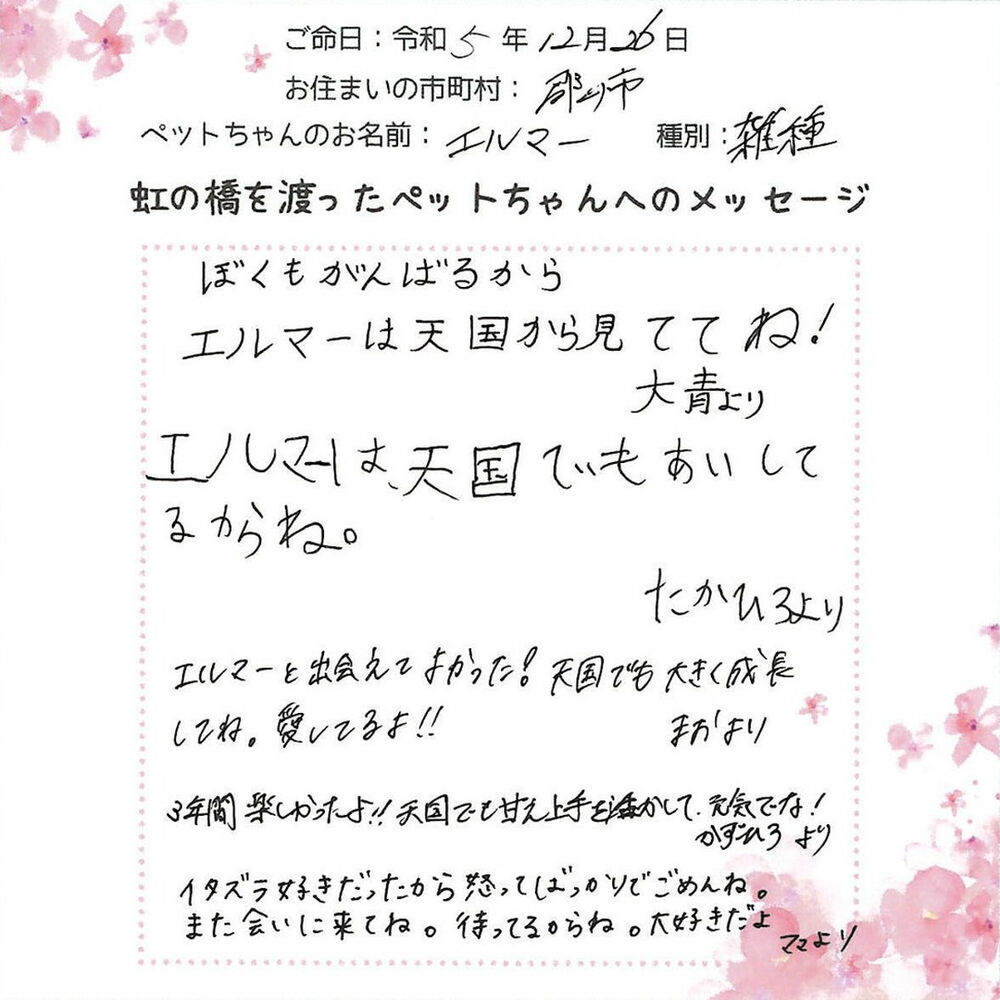 ご命日：令和5年12月26日
お住まいの市町村：郡山市
ペットちゃんのお名前：エルマー 種別：雑種
虹の橋を渡ったペットちゃんへのメッセージ
ぼくもがんばるから
エルマーは天国から見ててね！
大青より
エルマーは、天国でもあいして
るからね。
たかひろより
エルマーと出会えてよかった！天国でも大きく成長
してね。愛してるよ！！
まおより
3年間楽しかったよ！！天国でも甘え上手を活かして、元気でな！
かずひろより
イタズラ好きだったから怒ってばっかりでごめんね。
また会いに来てね。待ってるからね。大好きだよ
ママより